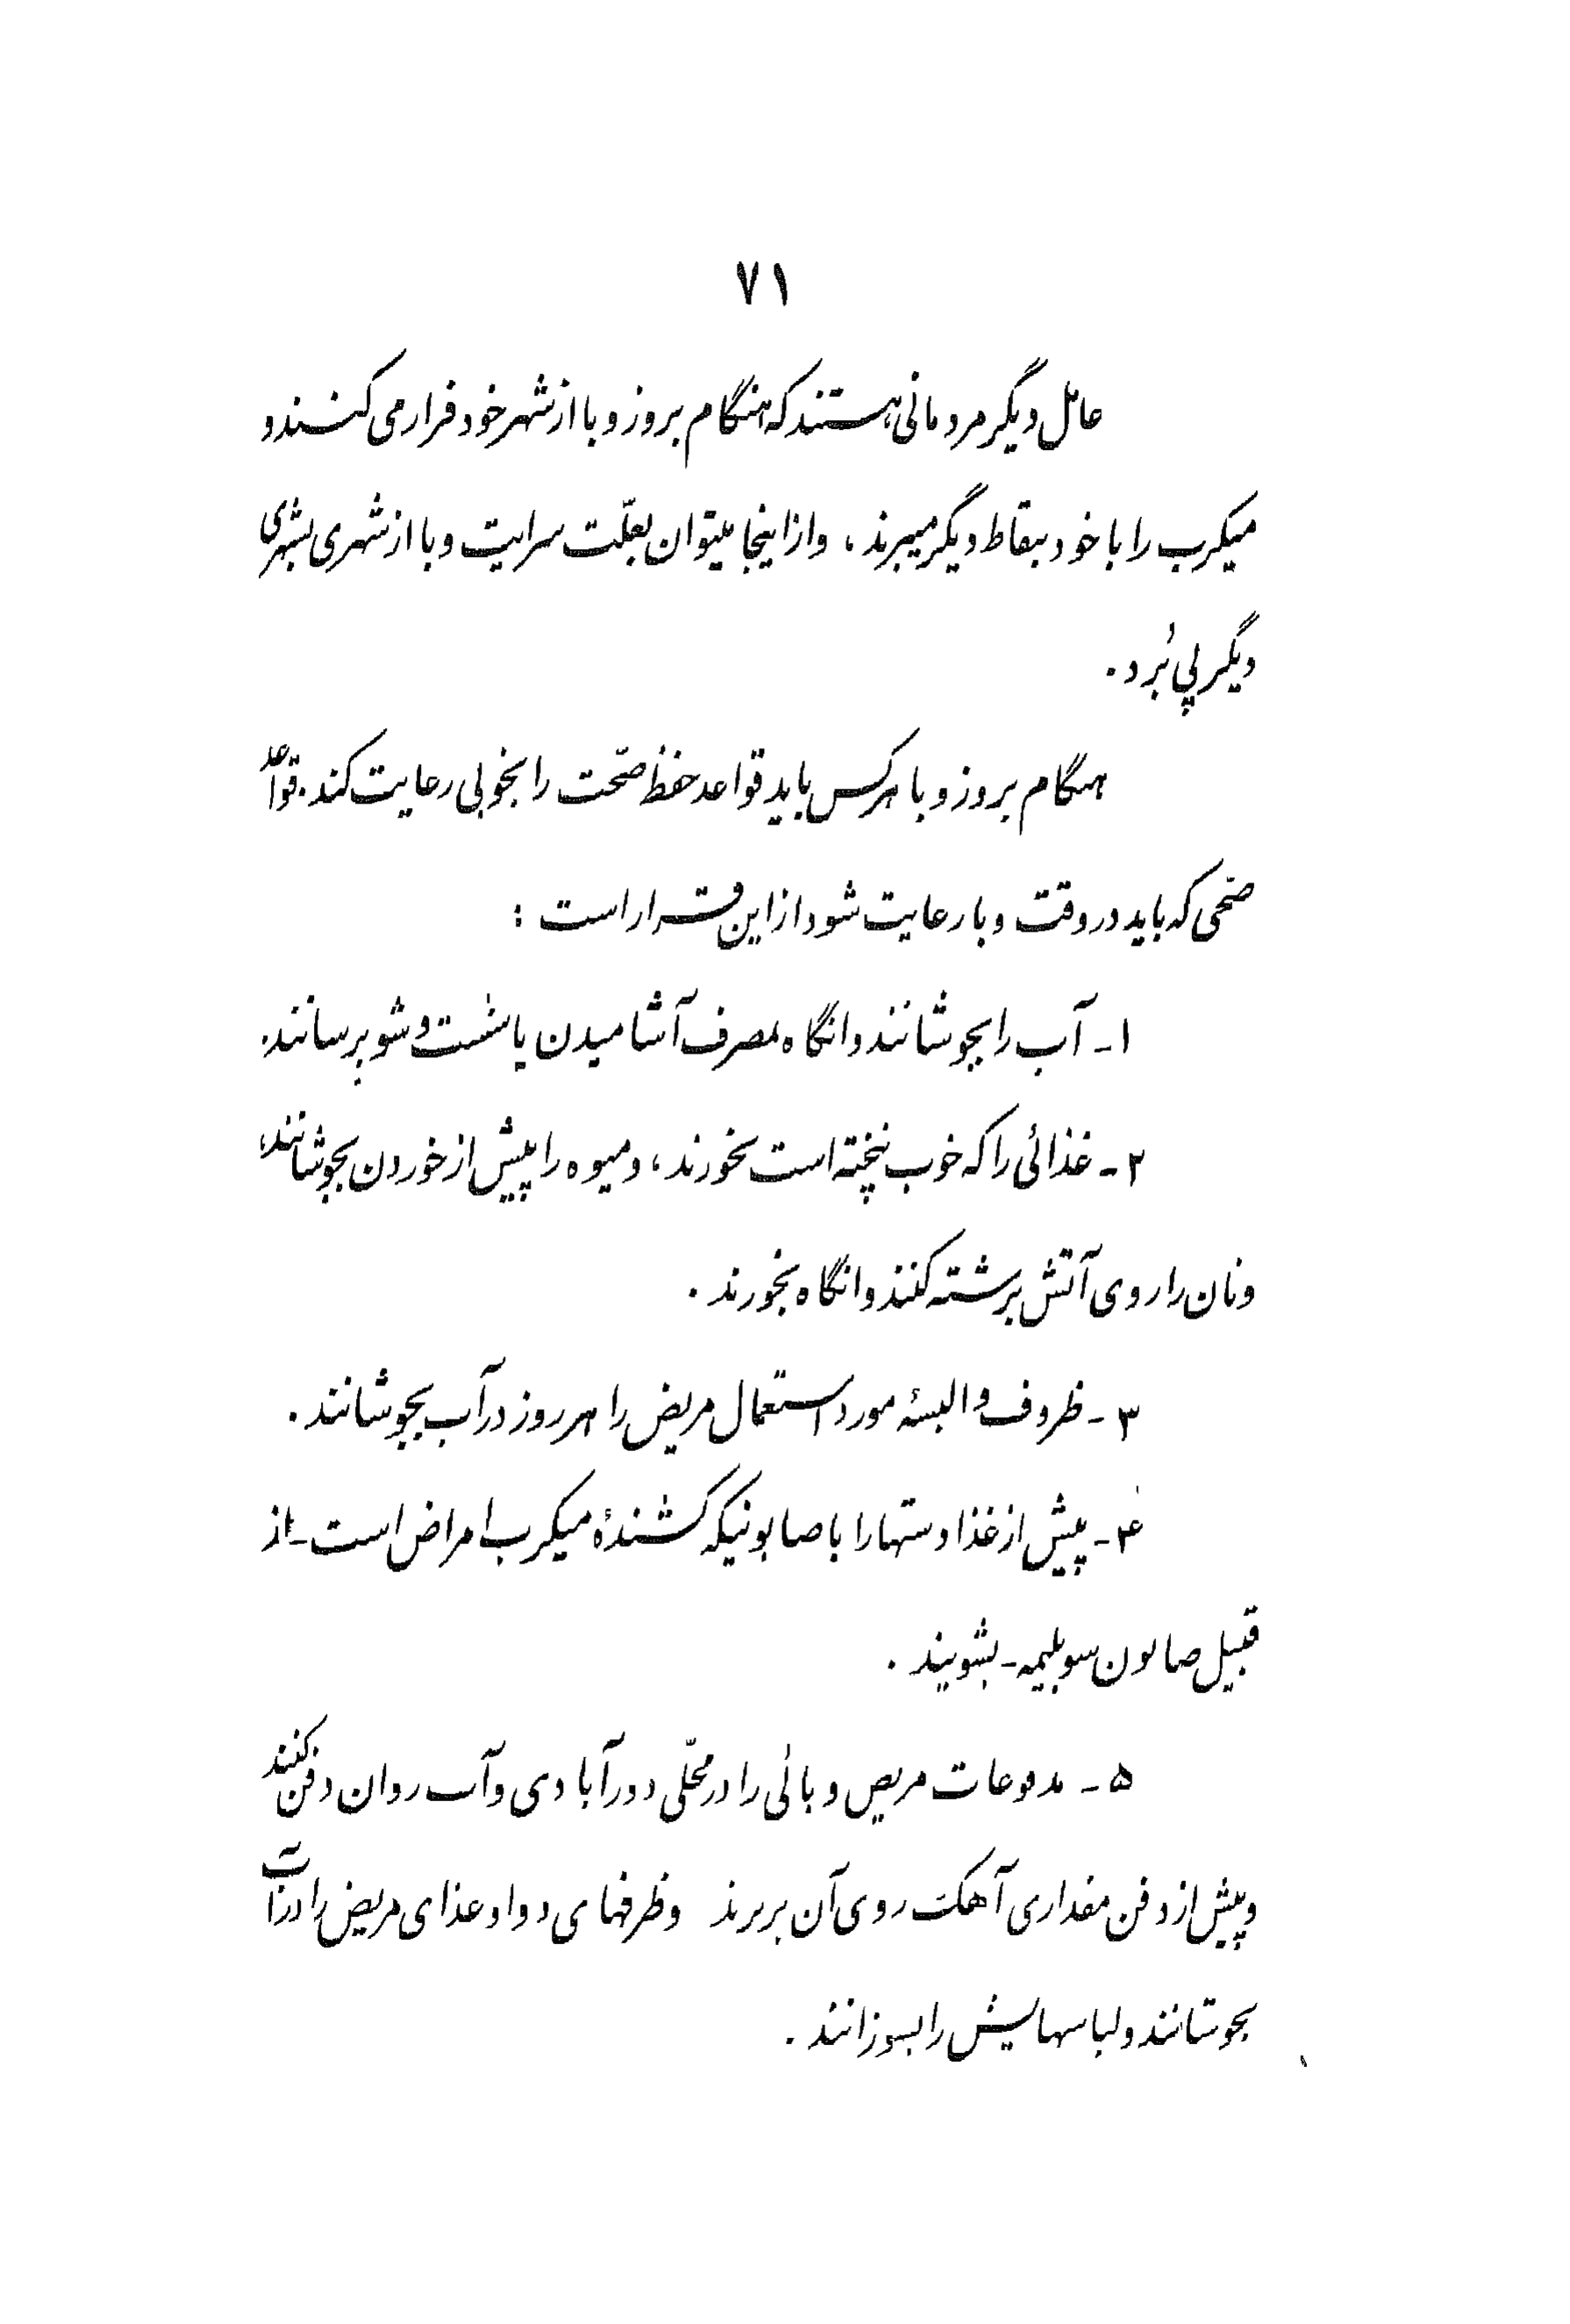 ۷۱
عامل دیگر مردمانی هستند که هنگام بروز وبا از شهر خود فرار می کنند و
میکرب را با خود بنقاط دیگر میبرند، و از اینجا میتوان بعلّت سرایت وبا از شهری بشهری
دیگر پی بُرد.
هنگام بروز وبا هر کس باید قواعد حفظ صحّت را بخوبی رعایت کند. قواعد
صحّی که باید در وقت وبا رعایت شود از این قرار است :
۱ - آب را بجوشانند و انگاه بمصرف آشامیدن یا شست و شو برسانند.
۲ - غذائی را که خوب نپخته است نخورند، و میوه را پیش از خوردن بجوشانند،
و نان را روی آتش برشته کنند و انگاه بخورند.
۳ - ظروف و البسهٔ مورد استعمال مریض را هر روز در آب بجوشانند.
۴ - پیش از غذا دستها را با صابونیکه کشندهٔ میکرب امراض است - از
قبیل صابون سوبلیمه - بشویند.
۵ - مدفوعات مریض وبائی را در محلّی دور از آبادی و آب روان دفن کنند
و پیش از دفن مقداری آهک روی آن بریزند و ظرفهای دوا و غذای مریض را در آب
بجوشانند و لباسهایش را بسوزانند.